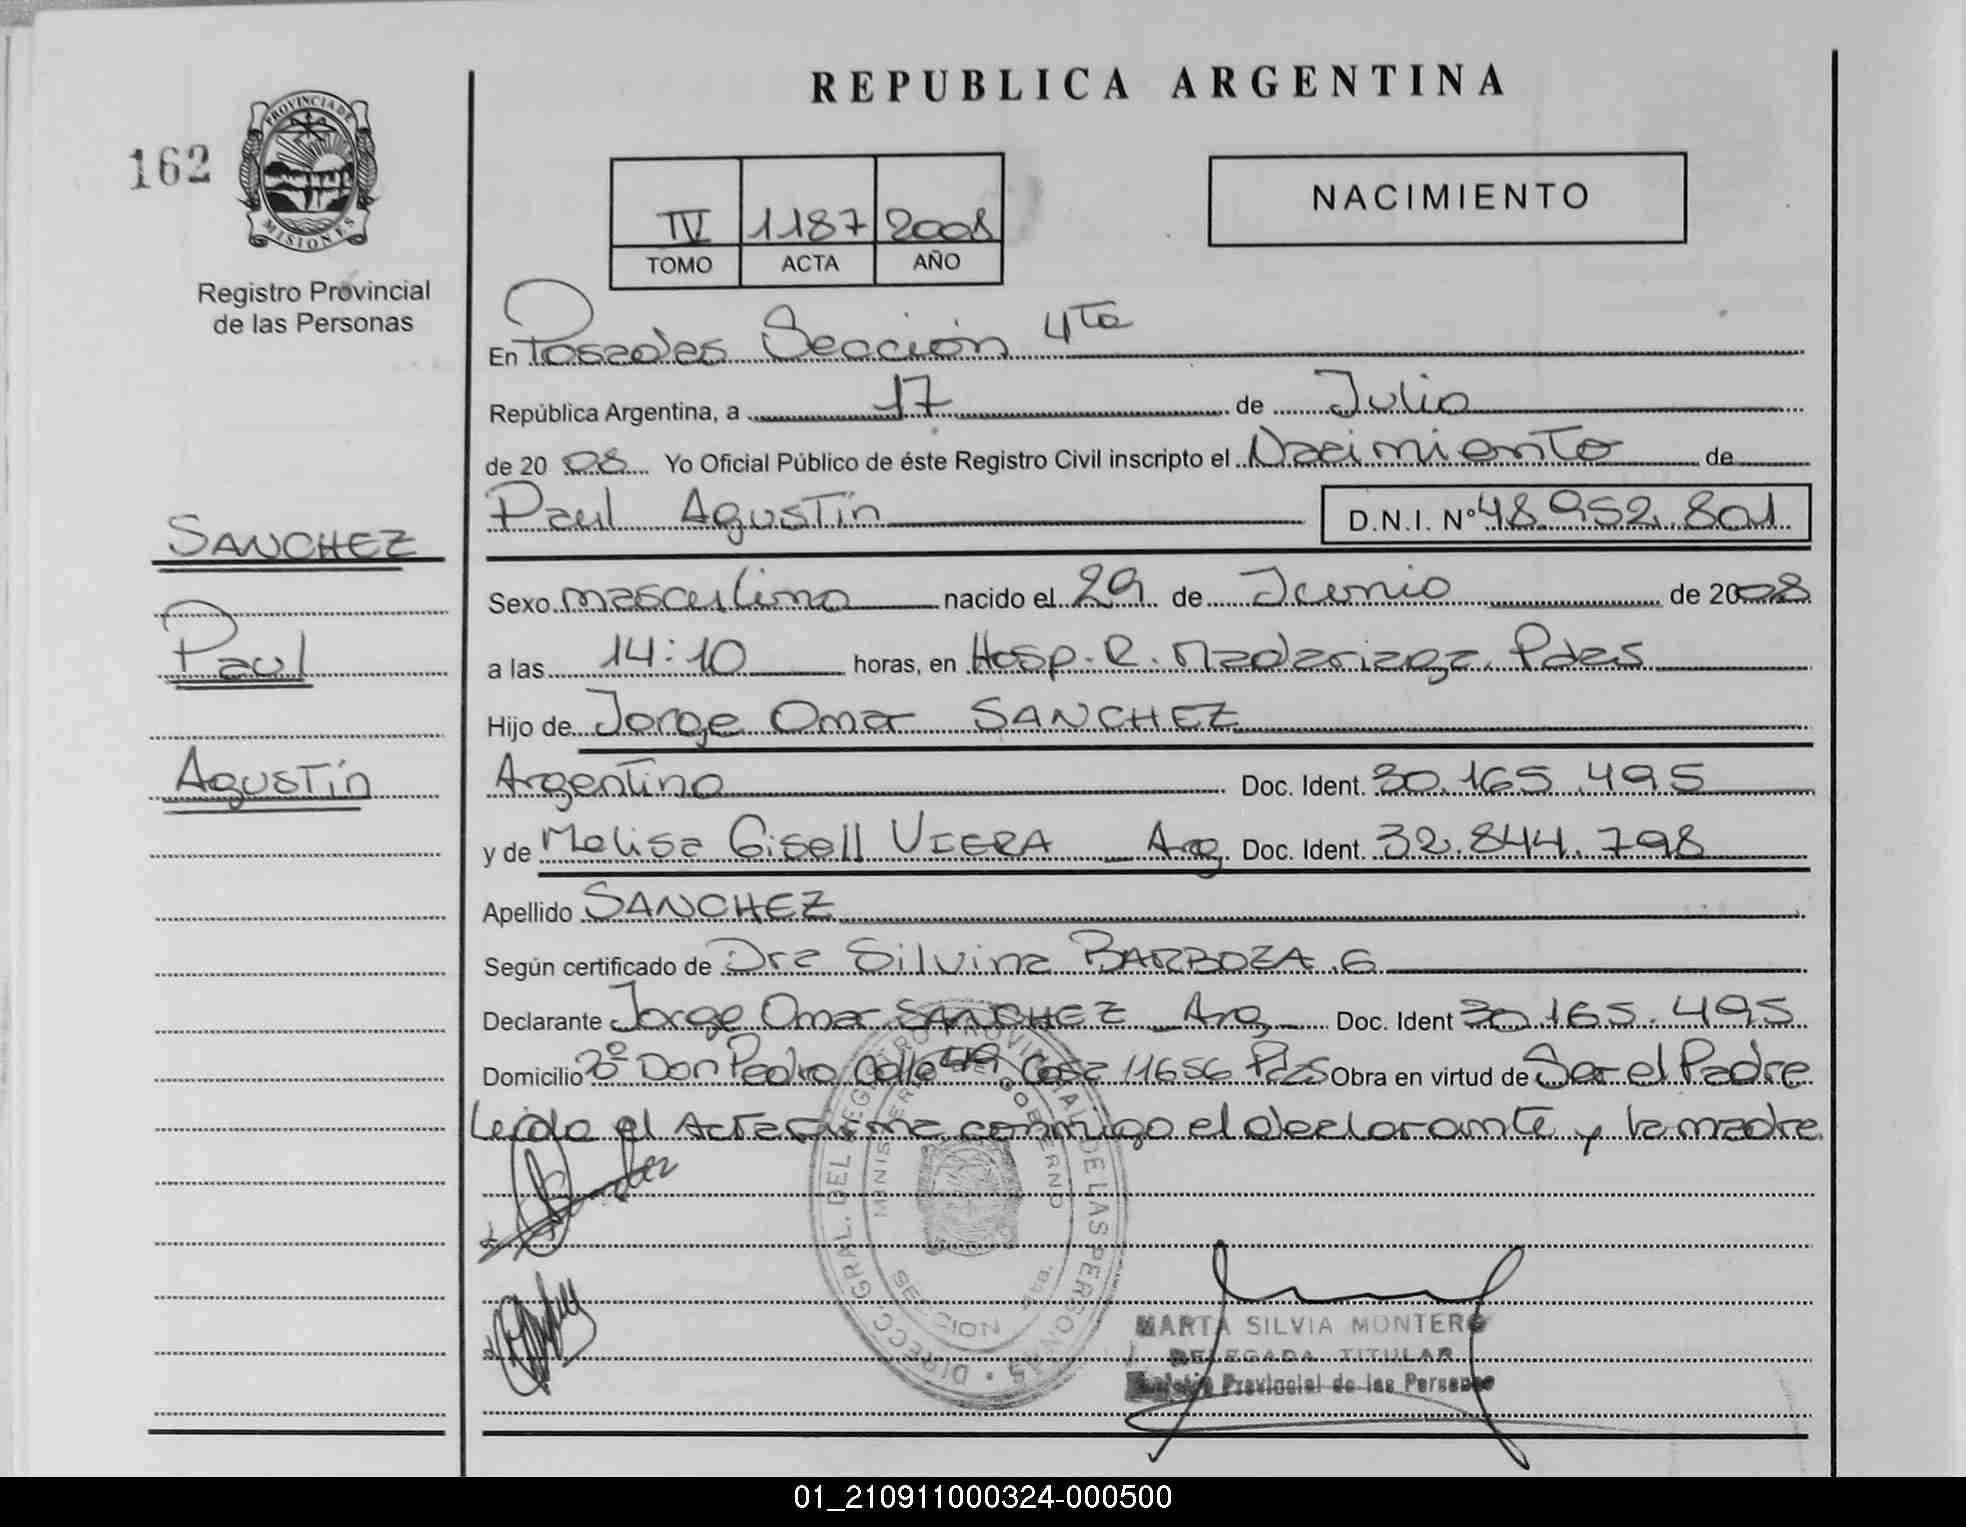 REPUBLICA ARGENTINA
162
PROVINCIA DE
MISIONES
Registro Provincial
de las Personas
IV 1187 2008
TOMO ACTA AÑO
NACIMIENTO
En Posadas Sección 4ta
República Argentina, a 17 de Julio
de 20 08 Yo Oficial Público de éste Registro Civil inscripto el Nacimiento de
Paul Agustín D.N.I. Nº 48.952.801
SANCHEZ
Paul
Agustín
Sexo masculino nacido el 29 de Junio de 2008
a las 14:10 horas, en Hosp. R. Madariaga. Pdas
Hijo de Jorge Omar SANCHEZ
Argentino Doc. Ident. 30.165.495
y de Melisa Gisell VIERA Arg Doc. Ident. 32.844.798
Apellido SANCHEZ
Según certificado de Dra Silvina BARBOZA.G
Declarante Jorge Omar SANCHEZ Arg Doc. Ident 30.165.495
Domicilio Bº Don Pedro Calle Casa 11656 Pdas Obra en virtud de Ser el Padre
Leída el Acta firma conmigo el declarante y la madre
DIRECC. GRAL. DEL REGISTRO PROVINCIAL DE LAS PERSONAS
MINISTERIO DE GOBIERNO
SECCION 4ta.
MARTA SILVIA MONTERO
DELEGADA TITULAR
Registro Provincial de las Personas
01_210911000324-000500